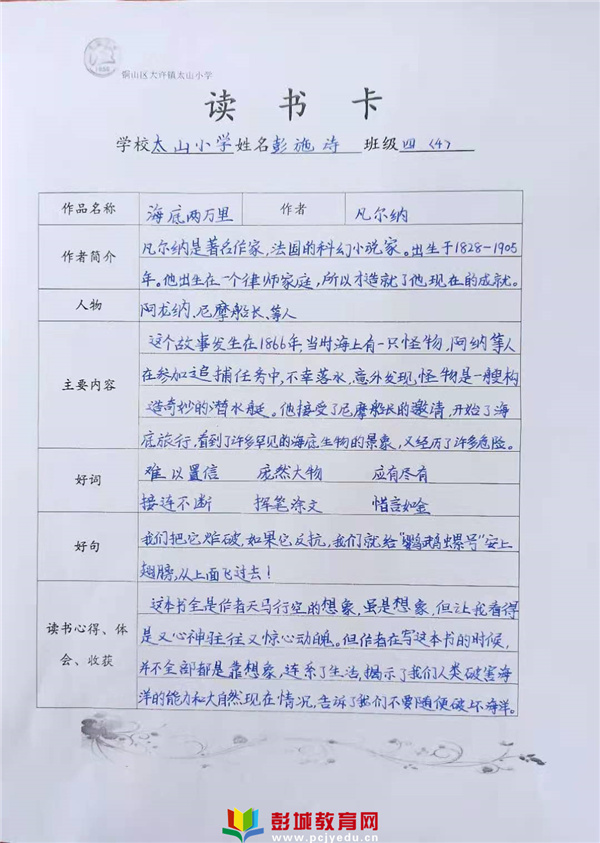 铜山区大许镇太山小学
读书卡
学校太山小学姓名彭施涛 班级四(4)
作品名称 海底两万里 作者 凡尔纳
作者简介
凡尔纳是著名作家,法国的科幻小说家。出生于1828-1905
年。他出生在一个律师家庭,所以才造就了他现在的成就。
人物 阿龙纳、尼摩船长、等人
主要内容
这个故事发生在1866年,当时海上有一只怪物,阿纳等人
在参加追捕任务中,不幸落水,意外发现怪物是一艘构
造奇妙的潜水艇。他接受了尼摩船长的邀请,开始了海
底旅行,看到了许多罕见的海底生物的景象,又经历了许多危险。
好词
难以置信 庞然大物 应有尽有
接连不断 挥笔涂文 惜言如金
好句
我们把它炸破,如果它反抗,我们就给"鹦鹉螺号"安上
翅膀,从上面飞过去!
读书心得、体
会、收获
这本书全是作者天马行空的想象,虽是想象,但让我看得
是又心神驻往又惊心动魄。但作者在写这本书的时候,
并不全部都是靠想象,连系了生活,揭示了我们人类破害海
洋的能力和大自然现在情况,告诉了我们不要随便破坏海洋。
彭城教育网
www.pcjyedu.cn